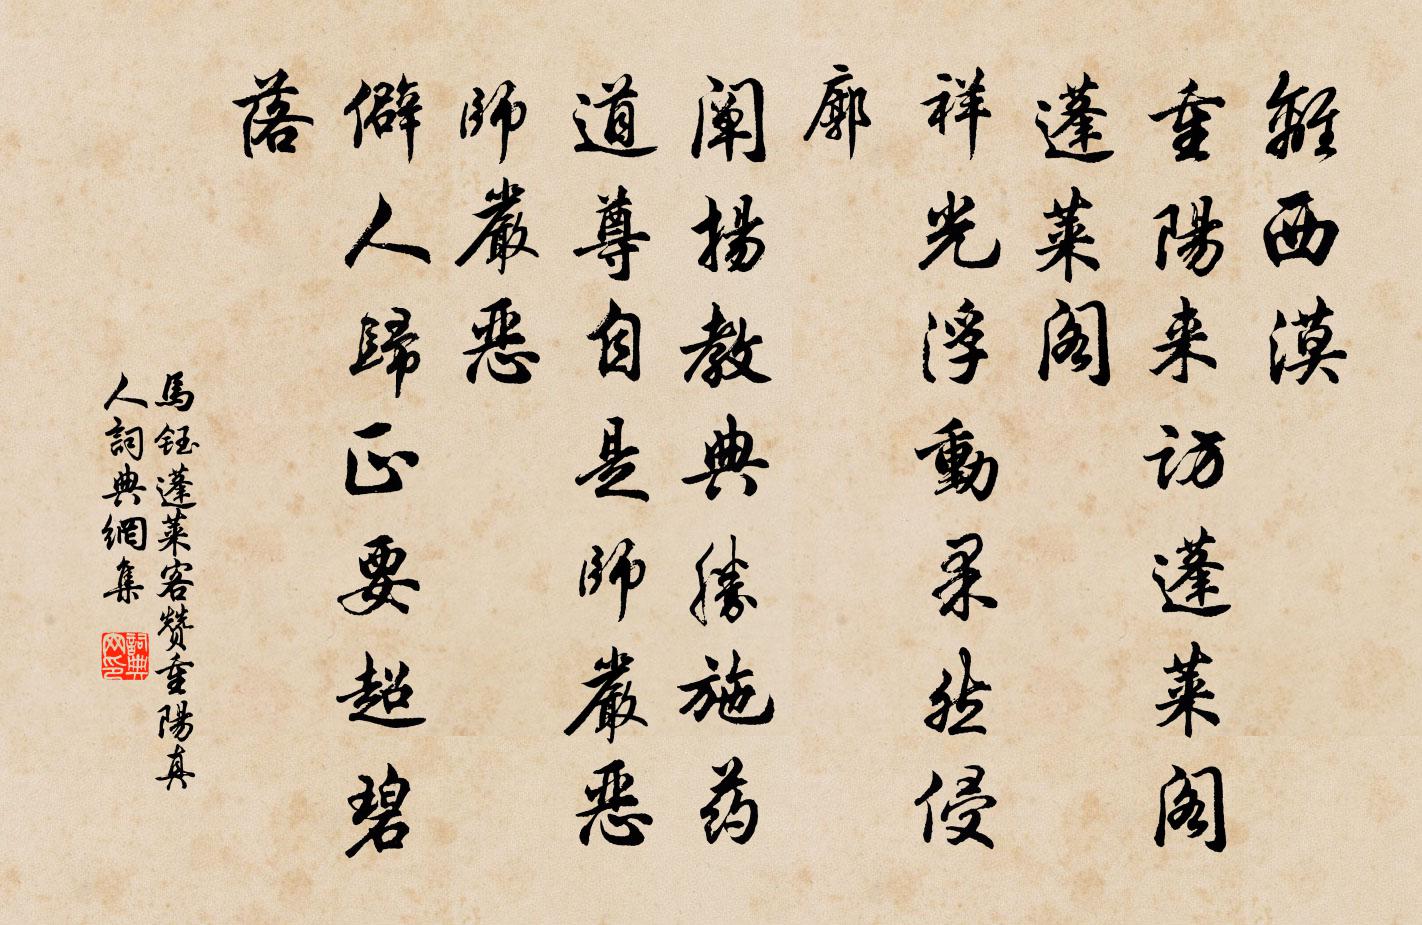 離西漠
重陽来訪蓬萊閣
蓬萊閣
祥光浮動果然侵
廓
闡揚教典勝施药
道尊自是師嚴惡
師嚴惡
僻人歸正要超碧
落
馬鈺蓬萊客贊重陽真
人詞典網集
詞典网印